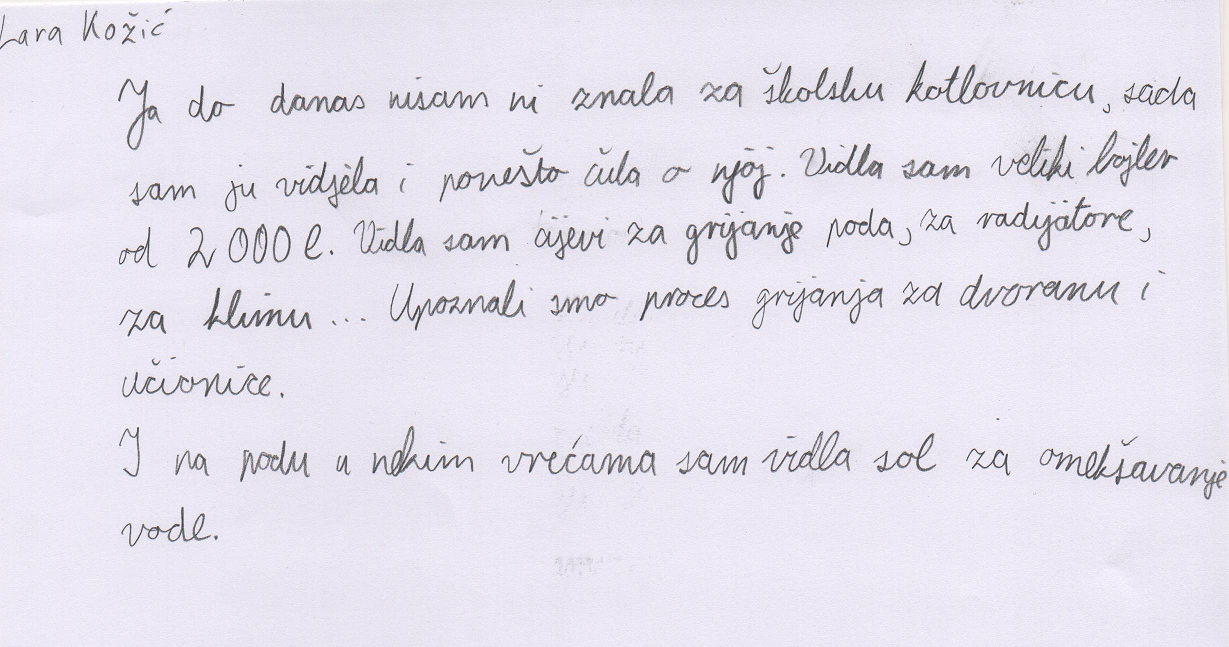 Lara Kožić
Ja do danas nisam ni znala za školsku kotlovnicu, sada
sam ju vidjela i ponešto čula o njoj. Vidla sam veliki bojler
od 2000 l. Vidla sam cijevi za grijanje poda, za radijatore,
za klimu... Upoznali smo proces grijanja za dvoranu i
učionice.
I na podu u nekim vrećama sam vidla sol za omekšavanje
vode.